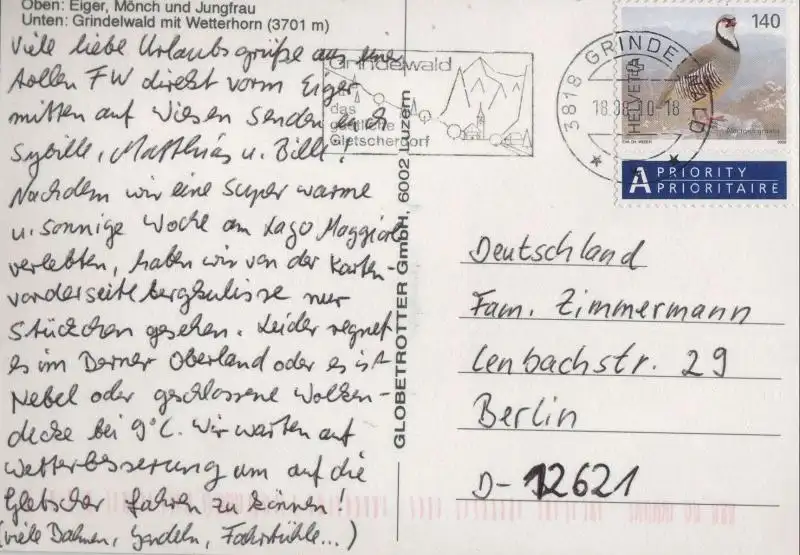 Oben: Eiger, Mönch und Jungfrau
Unten: Grindelwald mit Wetterhorn (3701 m)
Viele liebe Urlaubsgrüße aus einer
tollen FW direkt vorm Eiger
mitten auf Wiesen senden euch
Sybille, Matthias u. Billi!
Nachdem wir eine super warme
u. sonnige Woche am Lago Maggiore
verlebten, haben wir von der Karten-
vorderseitebergkulisse nur
Stückchen gesehen. Leider regnet
es im Berner Oberland oder es ist
Nebel oder geschlossene Wolken-
decke bei 9°C. Wir warten auf
Wetterbesserung um auf die
Gletscher fahren zu können!
(viele Bahnen, Gondeln, Fahrstühle...)
Grindelwald
das
Gletscherdorf
GLOBETROTTER GmbH, 6002 Luzern
3818 GRINDEL
140
HELVETIA
Alectoris graeca
A PRIORITY
PRIORITAIRE
Deutschland
Fam. Zimmermann
Lenbachstr. 29
Berlin
D-12621